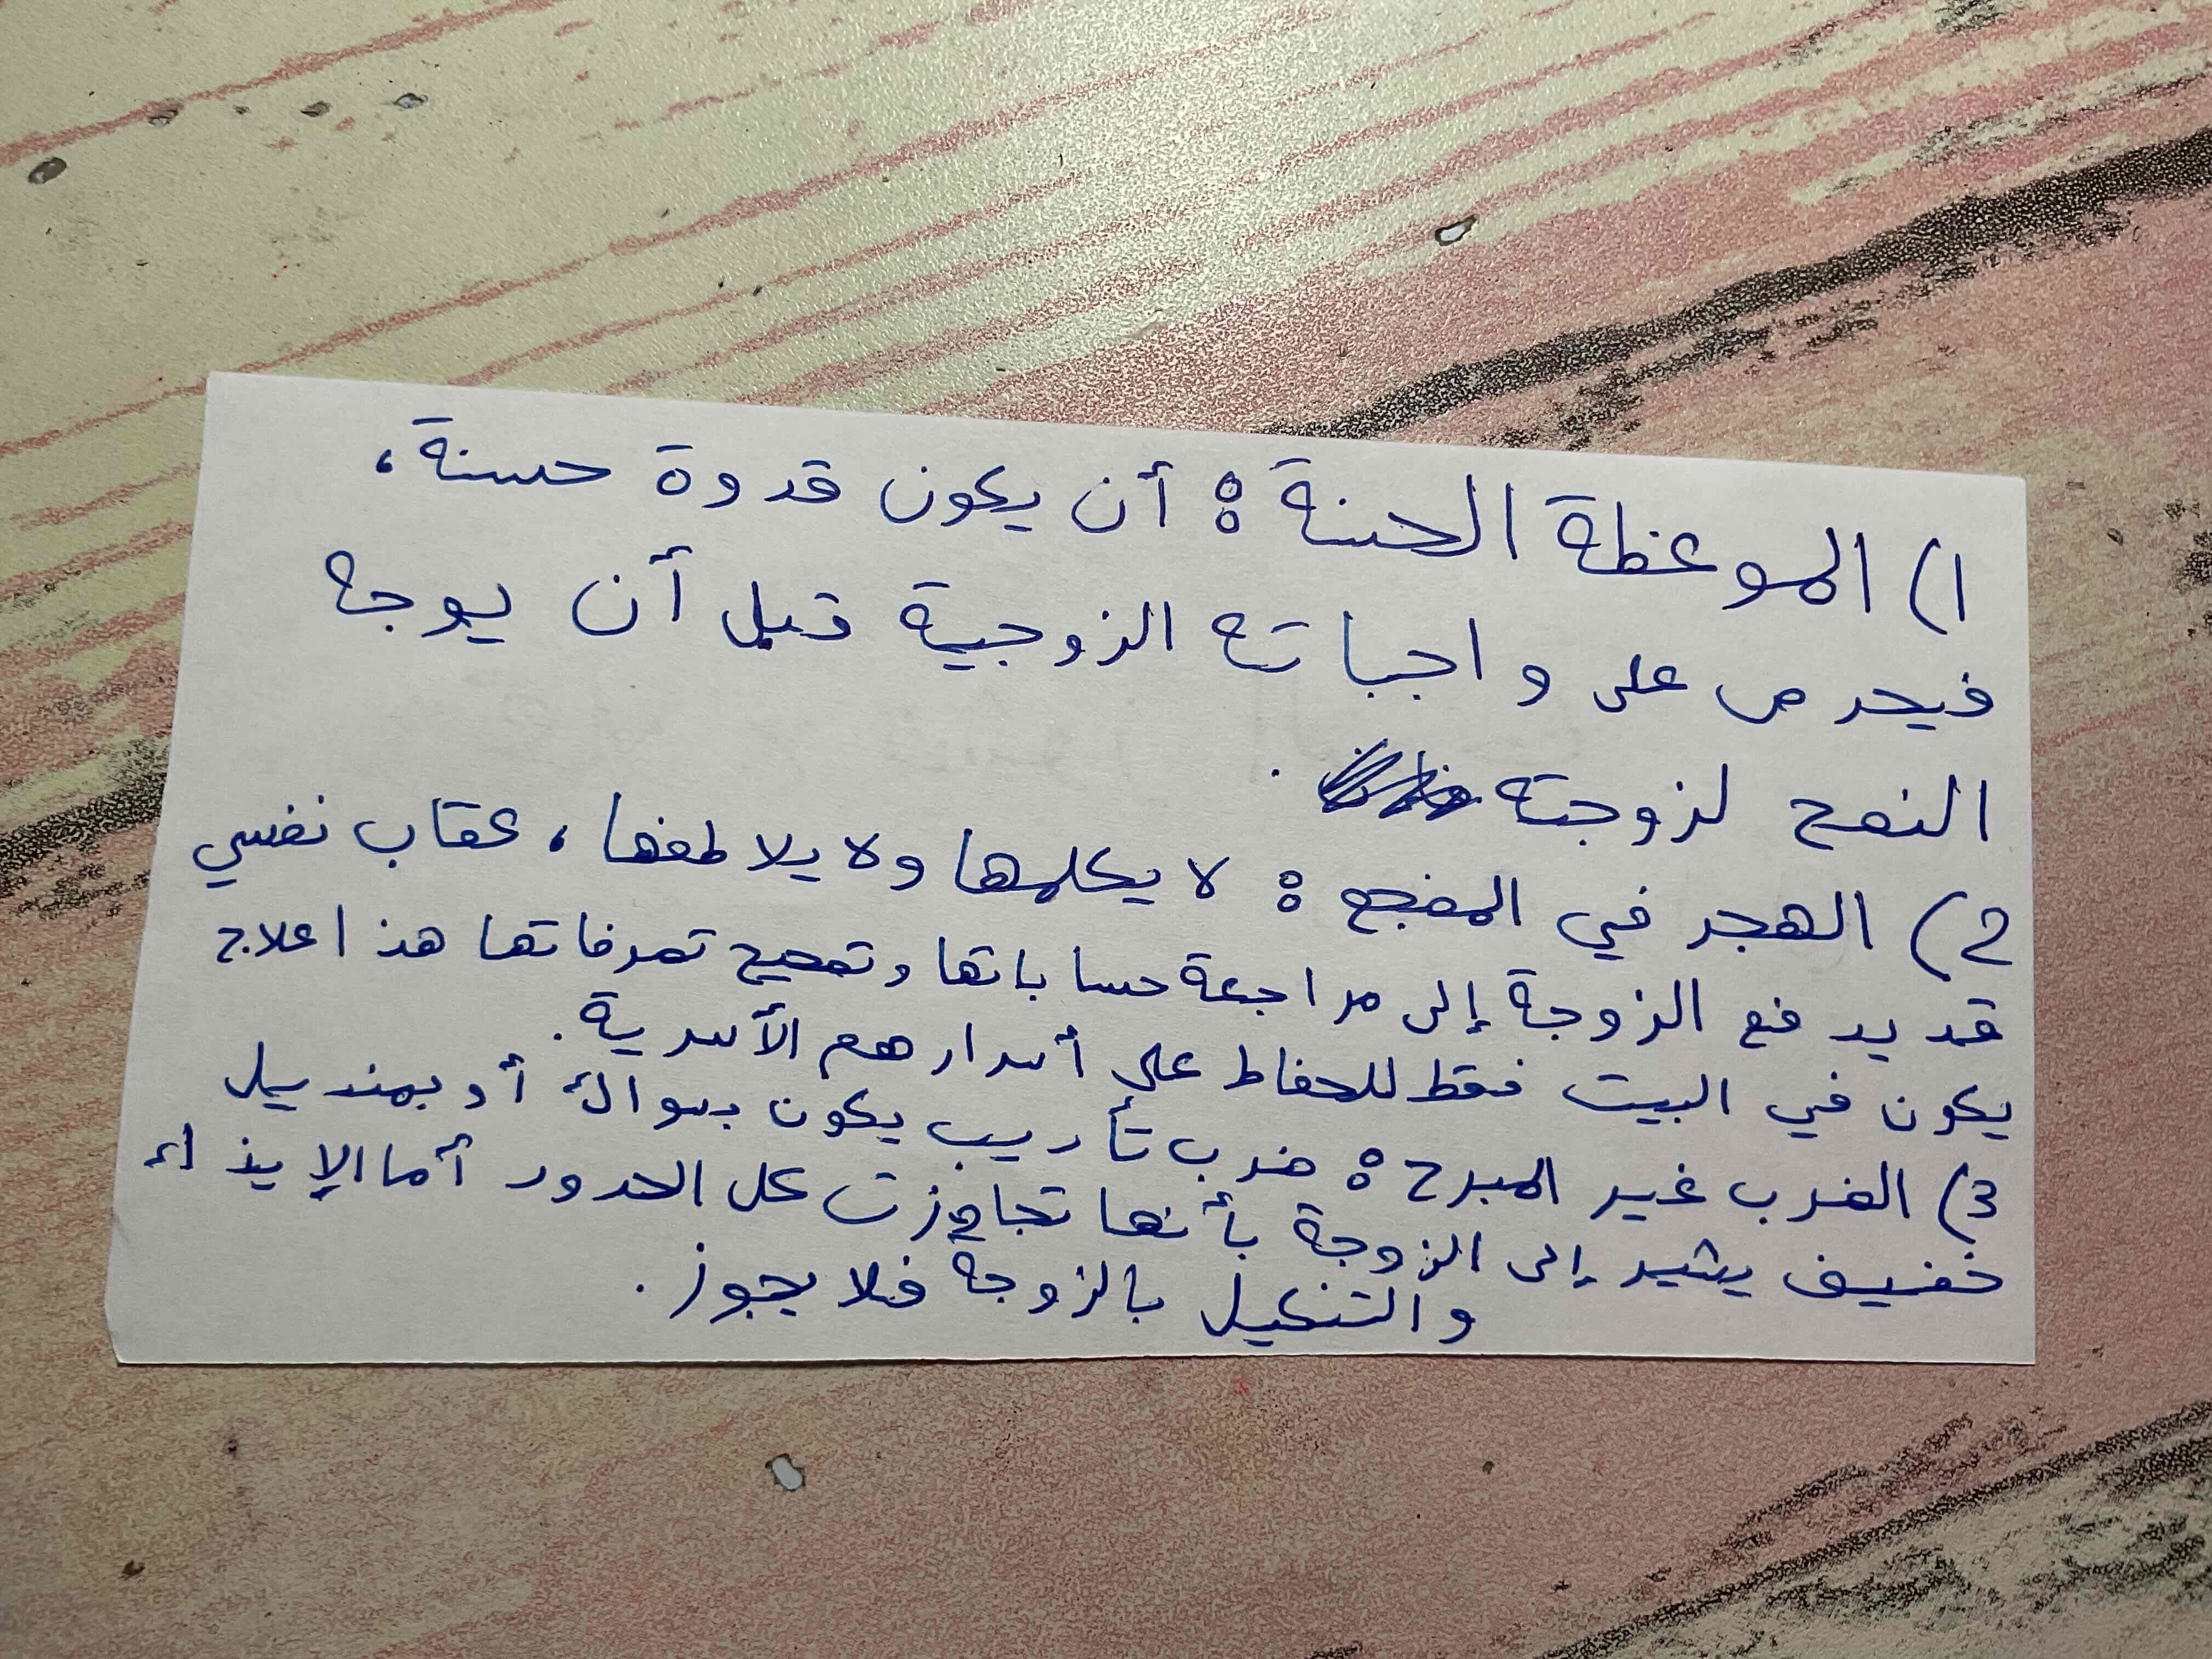 1) الموعظة الحسنة : أن يكون قدوة حسنة،
فيحرص على واجباته الزوجية قبل أن يوجه
النصح لزوجته .
2) الهجر في المضجع : لا يكلمها ولا يلاطفها، عقاب نفسي
قد يدفع الزوجة إلى مراجعة حساباتها وتصحيح تصرفاتها هذا علاج
يكون في البيت فقط للحفاظ على أسرارهم الأسرية.
3) الضرب غير المبرح : ضرب تأديب يكون بسواك أو بمنديل
خفيف يشير إلى الزوجة بأنها تجاوزت كل الحدود أما الإيذاء
والتنكيل بالزوجة فلا يجوز.